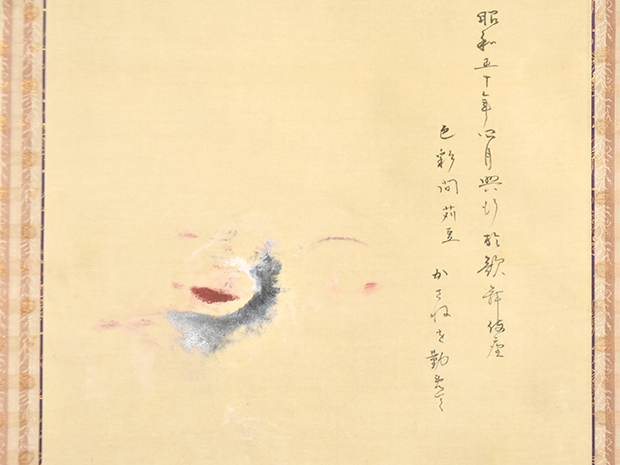 昭和五十年四月興行於歌舞伎座
色彩間苅豆 かさねを勤めて